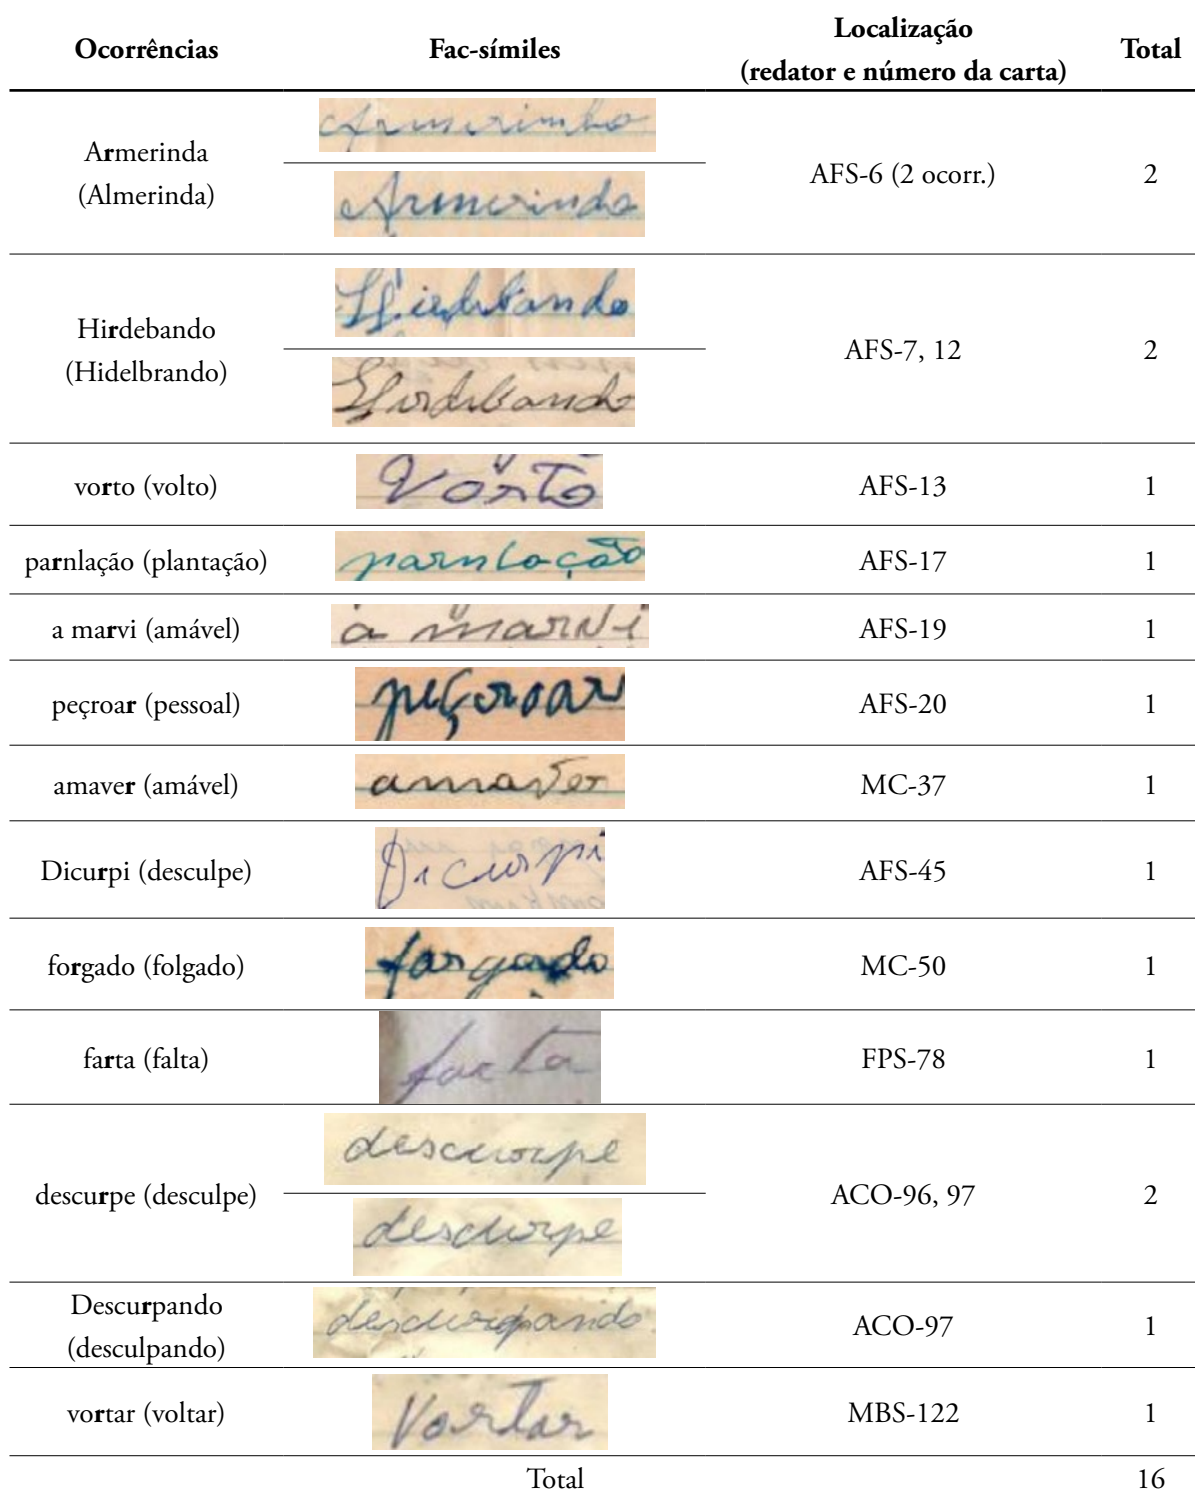 Ocorrências Fac-símiles Localização (redator e número da carta) Total
Armerinda (Almerinda) Armerinda AFS-6 (2 ocorr.) 2
Armerinda
Hirdebando (Hidelbrando) Hirdebando AFS-7, 12 2
Hirdebando
vorto (volto) Vorto AFS-13 1
parnlação (plantação) parnlação AFS-17 1
a marvi (amável) a marvi AFS-19 1
peçroar (pessoal) peçroar AFS-20 1
amaver (amável) amaver MC-37 1
Dicurpi (desculpe) Dicurpi AFS-45 1
forgado (folgado) forgado MC-50 1
farta (falta) farta FPS-78 1
descurpe (desculpe) descurpe ACO-96, 97 2
descurpe
Descurpando (desculpando) descurpando ACO-97 1
vortar (voltar) Vortar MBS-122 1
Total 16